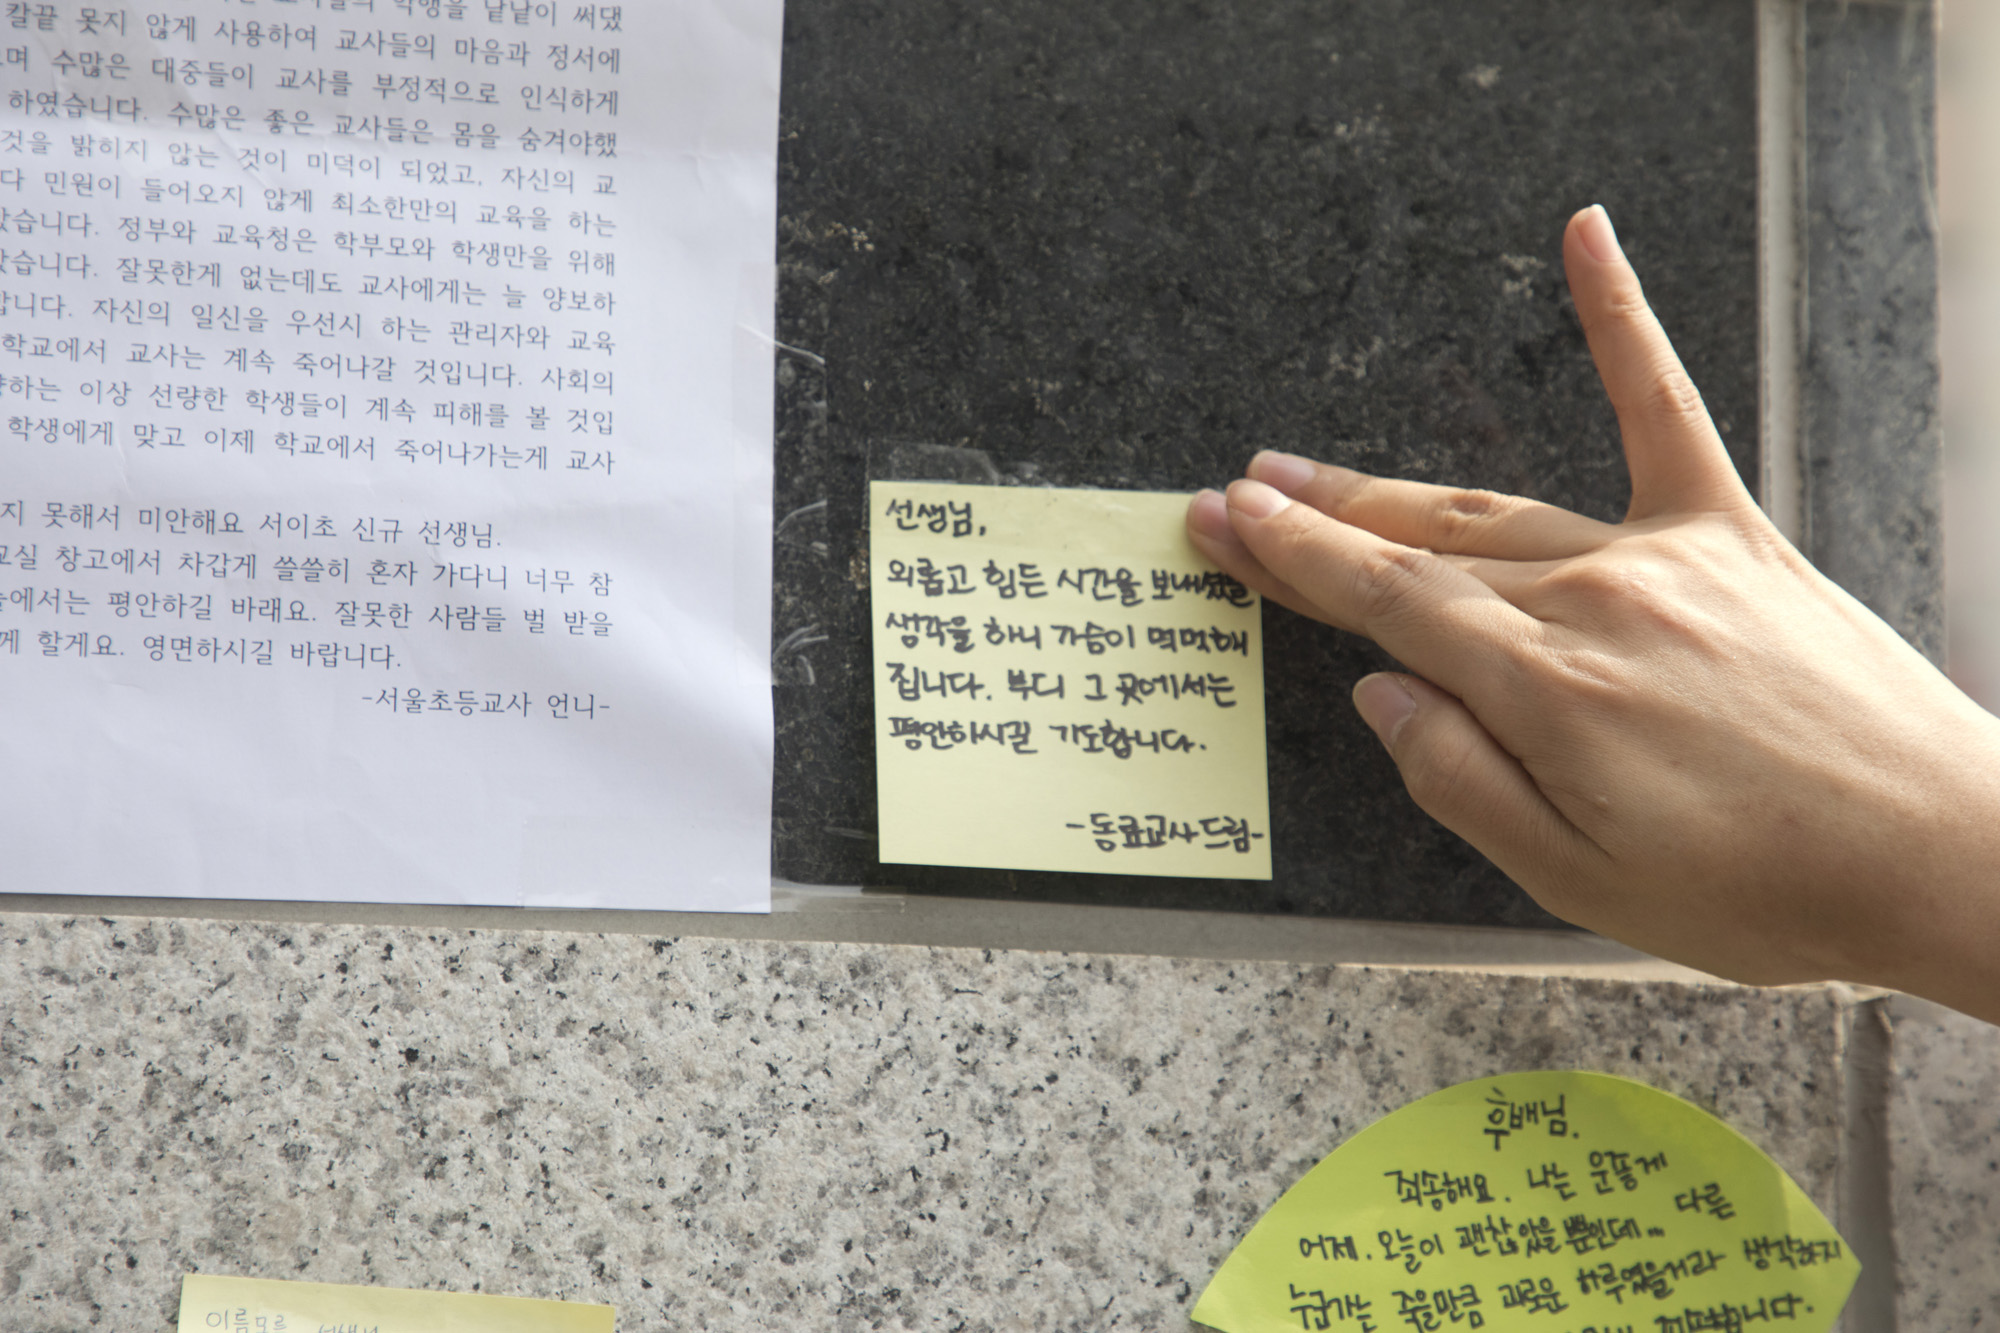 악행을 낱낱이 써댔
칼끝 못지 않게 사용하여 교사들의 마음과 정서에
며 수많은 대중들이 교사를 부정적으로 인식하게
하였습니다. 수많은 좋은 교사들은 몸을 숨겨야했
것을 밝히지 않는 것이 미덕이 되었고, 자신의 교
다 민원이 들어오지 않게 최소한만의 교육을 하는
았습니다. 정부와 교육청은 학부모와 학생만을 위해
았습니다. 잘못한게 없는데도 교사에게는 늘 양보하
합니다. 자신의 일신을 우선시 하는 관리자와 교육
학교에서 교사는 계속 죽어나갈 것입니다. 사회의
하는 이상 선량한 학생들이 계속 피해를 볼 것입
학생에게 맞고 이제 학교에서 죽어나가는게 교사
지 못해서 미안해요 서이초 신규 선생님.
교실 창고에서 차갑게 쓸쓸히 혼자 가다니 너무 참
늘에서는 평안하길 바래요. 잘못한 사람들 벌 받을
께 할게요. 영면하시길 바랍니다.
-서울초등교사 언니-
선생님,
외롭고 힘든 시간을 보내셨을
생각을 하니 가슴이 먹먹해
집니다. 부디 그 곳에서는
평안하시길 기도합니다.
-동료교사 드림-
후배님.
죄송해요. 나는 운좋게
어제. 오늘이 괜찮았을 뿐인데... 다른
누군가는 죽을만큼 괴로운 하루였을거라 생각하지
이름모를 선생님